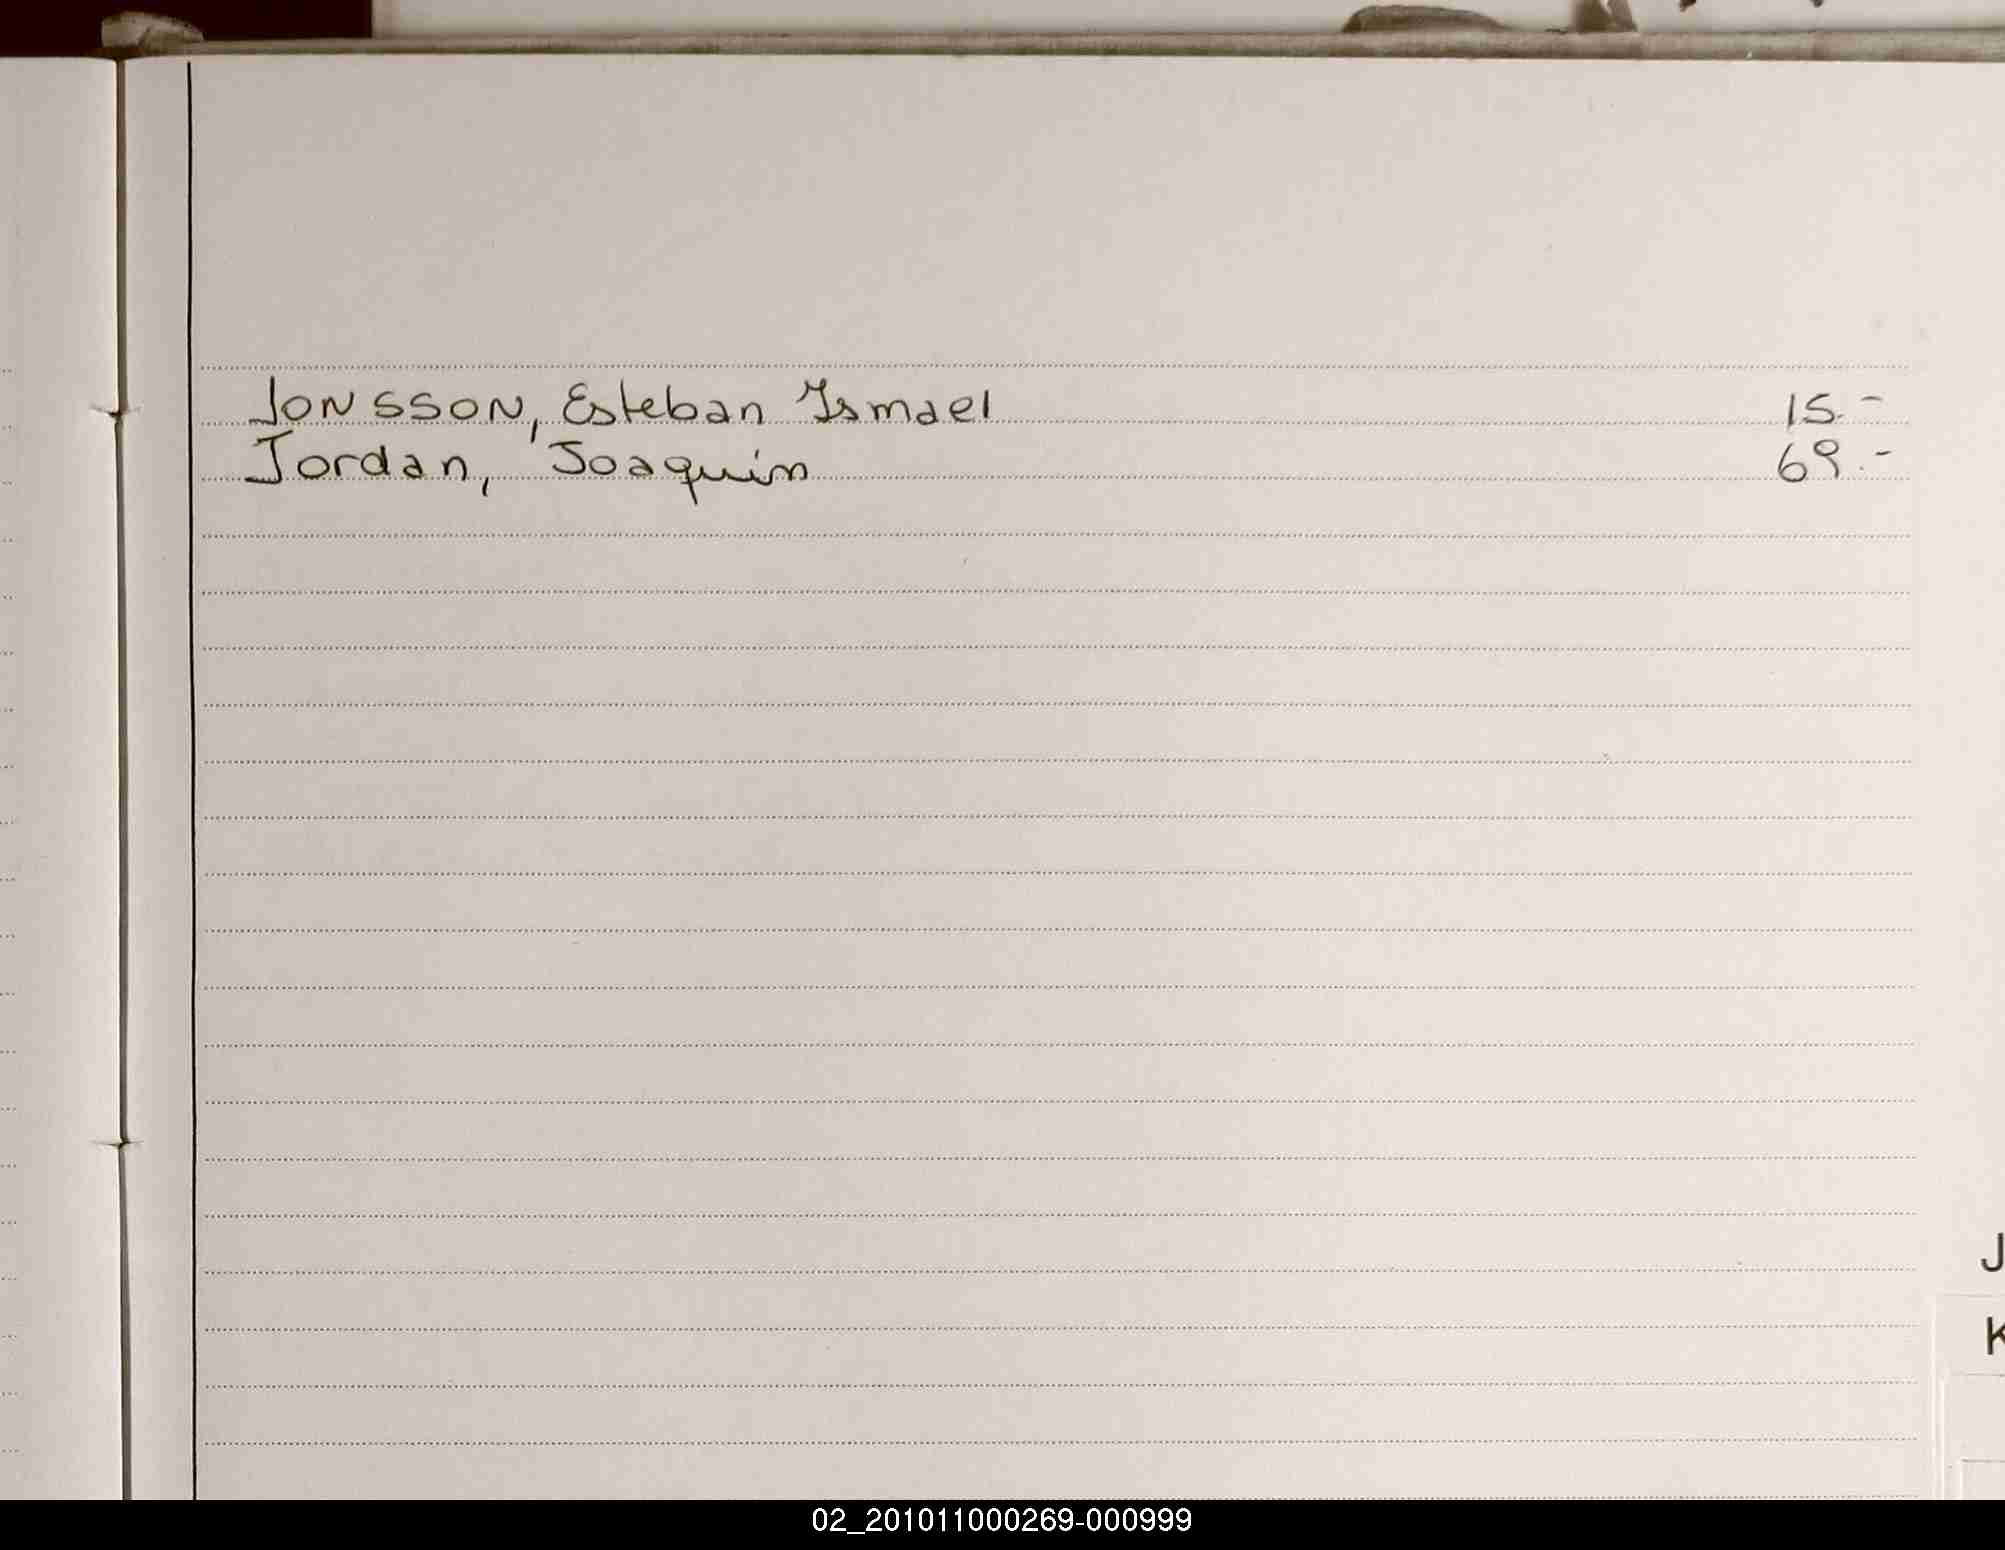 Jonsson, Esteban Ismael 15.-
Jordan, Joaquin 69.-
J
K
02_201011000269-000999